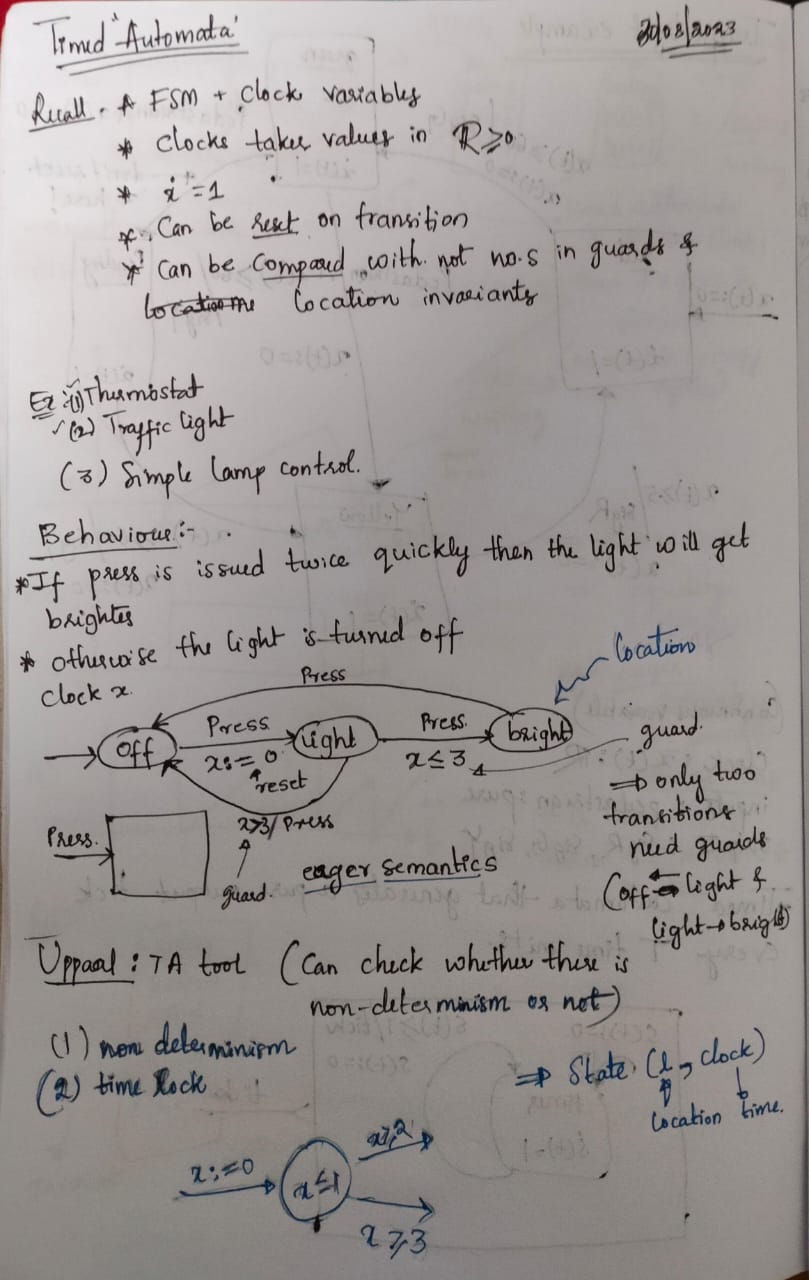 Timed "Automata"
30/08/2023
Recall - A FSM + Clock variables
* Clocks takes values in ℝ≥0
* ẋ = 1
* Can be reset on transition
* Can be compared with not no.s in guards &
Location invariants
Ex :- (1) Thermostat
(2) Traffic light
(3) Simple lamp control.
Behaviour :-
* If press is issued twice quickly then the light will get
brighter
* otherwise the light is turned off
clock x.
Location
Press
Off
Press
x:=0
reset
light
Press
x≤3
bright
guard.
⇒ only two
transitions
need guards
(off ← light &
light → bright)
x>3/Press
guard.
Press.
eager semantics
Uppaal : TA tool (Can check whether there is
non-determinism or not)
(1) non determinism
(2) time lock
⇒ State (l, clock)
Location time.
x:=0
x≤1
x≥2
x≥3